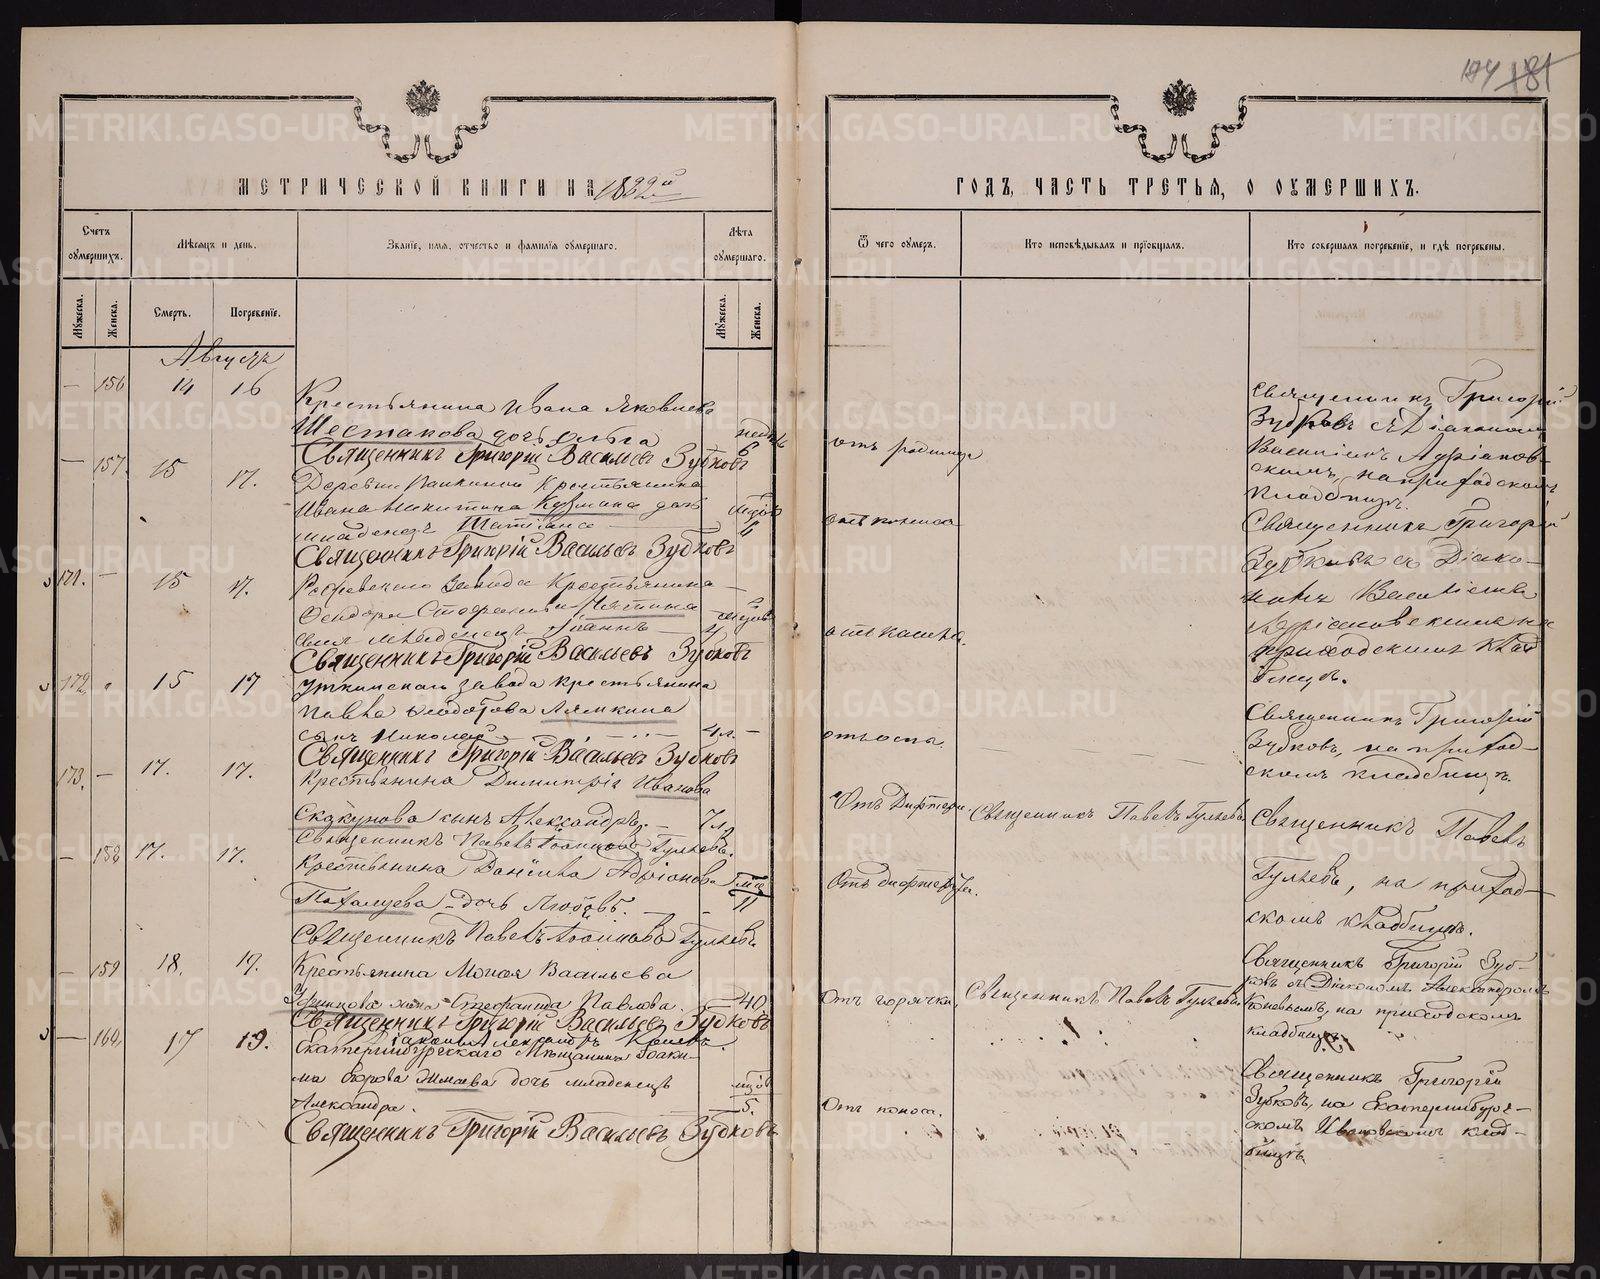 174 181
МЕТРИЧЕСКОЙ КНИГИ НА 1882й
ГОДЪ, ЧАСТЬ ТРЕТЬЯ, О ОУМЕРШИХЪ.
Счетъ оумершихъ.
Мѣсяцъ и день.
Званіе, имя, отчество и фамилія оумершаго.
Лѣта оумершаго.
Ѿ чего оумеръ.
Кто исповѣдывалъ и пріобщалъ.
Кто совершалъ погребеніе, и гдѣ погребены.
Мужеска.
Женска.
Смерть.
Погребеніе.
Мужеска.
Женска.
Августъ
— 156 14 16
Крестьянина Ивана Яковлева
Шестакова дочь Ольга
недѣль 6
Священникъ Григорій Васильевъ Зубковъ
отъ родимца
Священникъ Григорій
Зубковъ съ Діакономъ
Василіемъ Адріанов-
скимъ, на приходскомъ
кладбищѣ.
— 157 15 17.
Деревни Крестьянина
Ивана Никитина Кузмина дочь
младенецъ Татіана
4
Священникъ Григорій Васильевъ Зубковъ
отъ поноса
Священникъ Григорій
Зубковъ съ Діако-
номъ Василіемъ
Адріановскимъ на
приходскомъ клад
бищѣ.
171. — 15 17.
Ревдинскаго завода Крестьянина
Ѳеодора Стефанова
сынъ младенецъ Іоаннъ
Священникъ Григорій Васильевъ Зубковъ
отъ кашля.
172 " 15 17
Уткинскаго завода крестьянина
Павла Ѳеодотова Лямкина
сынъ Николай 4 л. —
Священникъ Григорій Васильевъ Зубковъ
отъ оспы.
Священникъ Григорій
Зубковъ, на приход-
скомъ кладбищѣ.
173. — 17. 17.
Крестьянина Димитрія Иванова
Скакунова сынъ Александръ. — 7 л.
Священникъ Павелъ Гуляевъ.
Отъ Дифтери.
Священникъ Павелъ Гуляевъ
Священникъ Павелъ
Гуляевъ, на приход-
скомъ кладбищѣ.
— 158 17. 17.
Крестьянина Даніила Адріанова
дочь Любовь.
11
Священникъ Павелъ Гуляевъ
Отъ дифтерита.
— 159 18. 19.
Крестьянина Моисея Васильева
жена Стефанида Павлова — 40
Священникъ Григорій Васильевъ Зубковъ
Діаконъ Александръ
Отъ горячки,
Священникъ Павелъ Гуляевъ
Священникъ Григорій Зуб-
ковъ съ Діакономъ Александромъ
на приходскомъ
кладбищѣ.
— 160. 17 19.
Екатеринбургскаго Мѣщанина Іоаки-
ма дочь младенецъ
Александра.
5.
Священникъ Григорій Васильевъ Зубковъ
Отъ поноса.
Священникъ Григорій
Зубковъ, на Екатеринбург-
скомъ Ивановскомъ клад-
бищѣ
METRIKI.GASO-URAL.RU